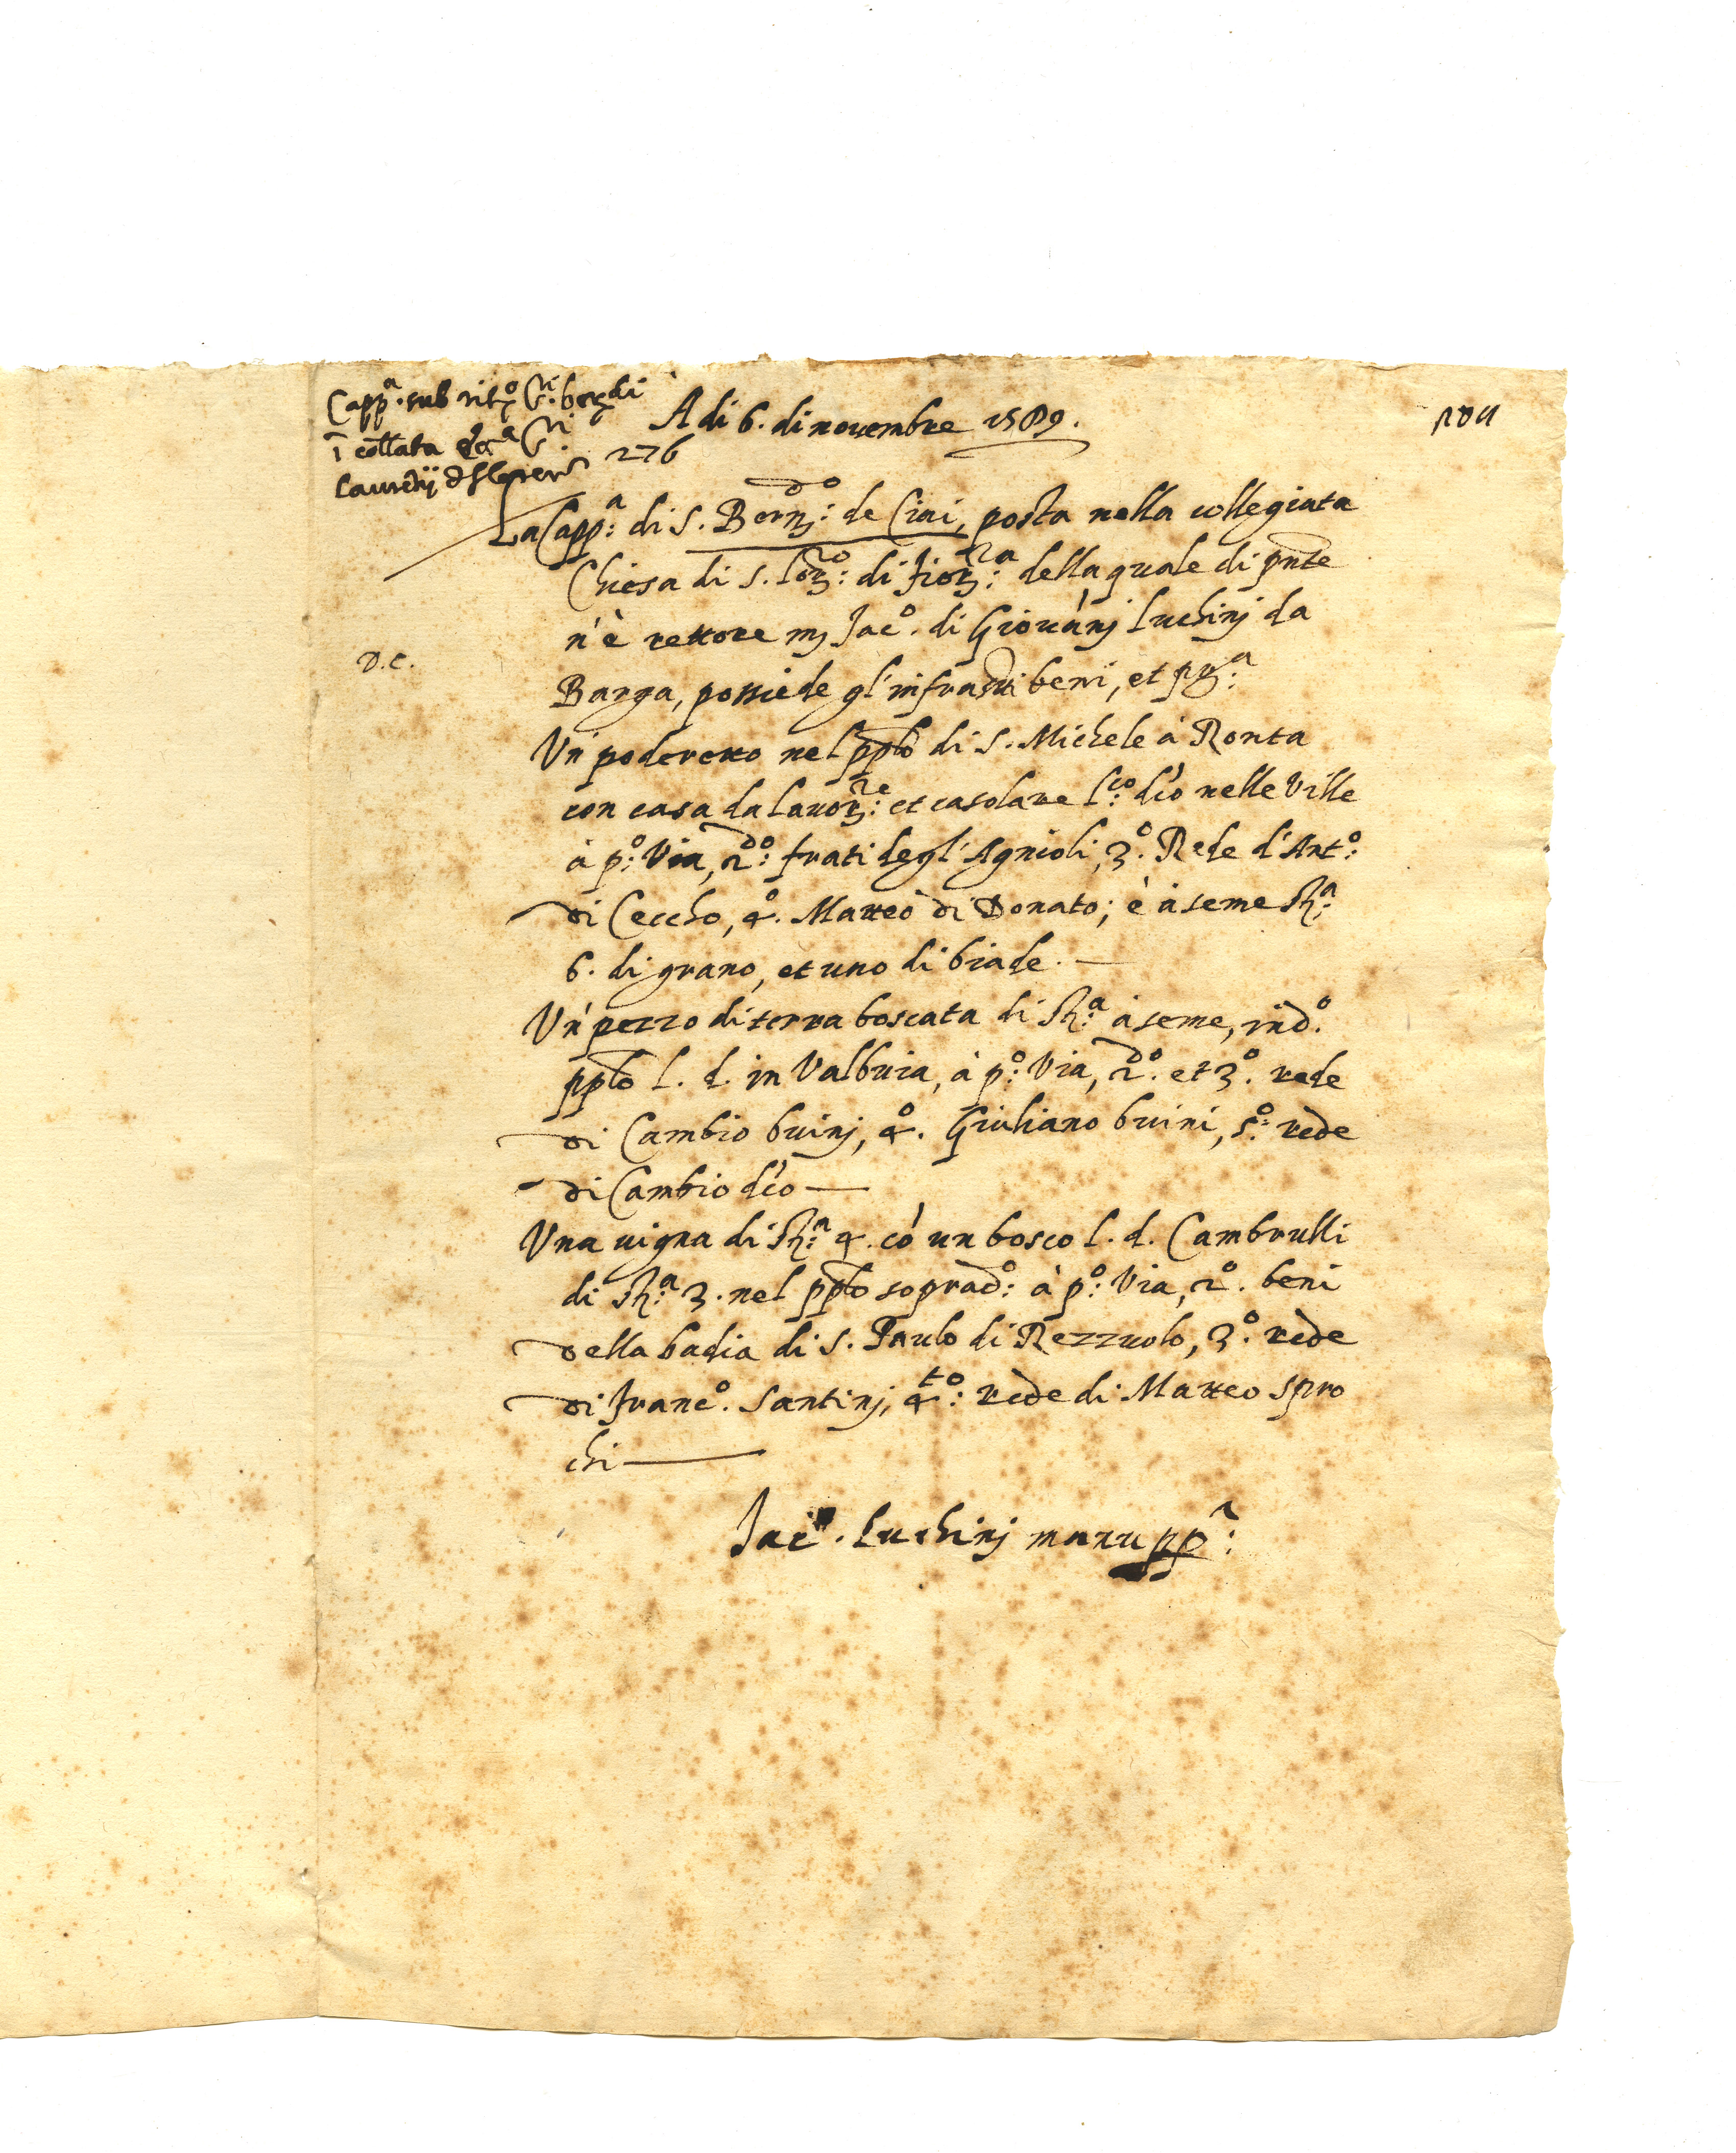 Capp.ª sub tit.º S.ti bern.di
ī coll.ata ecc.ª S.ti
Laurētij d Floren.
276
A di 6. di novembre 1589.
La Capp.ª di S. Bern.do de Ciai, posta nella collegiata
Chiesa di S. Lor.zo di Fior.za della quale di pñte
n'è rettore m. Jac.º di Giovānj Luchinj da
D.C.
Barga, possiede gl'infrasti beni, et p.ª
Un' poderetto nel ppło di S. Michele à Ronta
con casa da lavor.re et casolare l.co d'co nelle Ville
à p.º Via, 2.do frati degl' Agnioli, 3.º Rede d'Ant.º
di Ceccho, 4.º Matteo di Donato; è à seme st.ª
6. di grano, et uno di biade.
Un' pezzo di terra boscata di st.ª à seme, in d.º
ppło l. d. in Valbuia, à p.º Via, 2.do et 3.º rede
di Cambio buinj, 4.º Giuliano buini, 5.º rede
di Cambio d'co
Una vigna di st.ª 4. cō un bosco l. d. Cambrulli
di st.ª 3. nel ppło soprad.º à p.º Via, 2.º beni
della badia di S. Paulo di Rezzuolo, 3.º rede
di Franc.º Santinj, 4.to rede di Matteo spro
chi
Jac.º Luchinj manu pp.ª